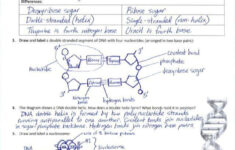 Differences
Deoxyribose sugar
Ribose sugar
Double-stranded (helix)
Single-stranded (non helix)
Thymine is fourth nitrogen base
Uracil is fourth base
1. Draw and label a double stranded segment of DNA with four nucleotides (arranged in two base pairs)
covalent bond
phosphate
deoxyribose
nucleotide
nitrogen bases
hydrogen bonds
2. The diagram shows a DNA double helix. How does a double helix form? What bonds hold it in position?
DNA double helix is formed by two poly nucleotide strands
running antiparallel to one another. Covalent bonds join nucleotides
in sugar phosphate backbone. Hydrogen bonds join nitrogen base pairs.
3. Draw and label a nucleosome: